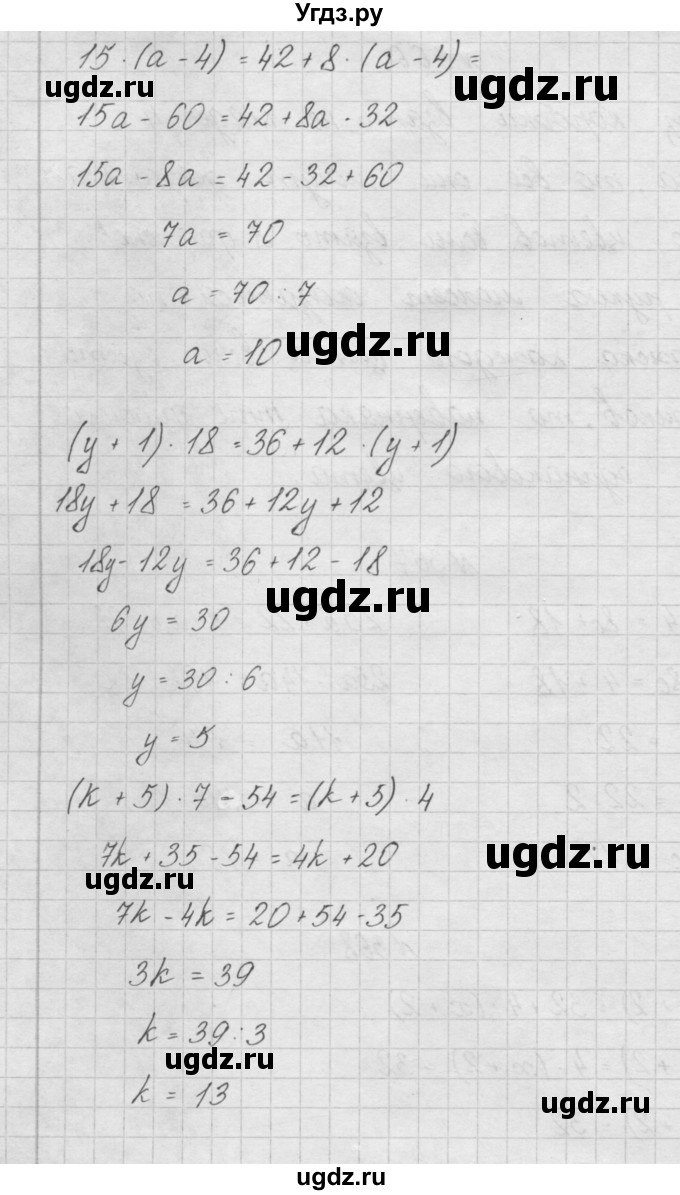 Угдз.ру
15 · (a - 4) = 42 + 8 · (a - 4) =
ugdz.ru
ugdz.ru
15a - 60 = 42 + 8a - 32
15a - 8a = 42 - 32 + 60
7a = 70
a = 70 : 7
a = 10
ugdz.ru
(y + 1) · 18 = 36 + 12 · (y + 1)
18y + 18 = 36 + 12y + 12
18y - 12y = 36 + 12 - 18
ugdz.ru
6y = 30
y = 30 : 6
y = 5
(k + 5) · 7 - 54 = (k + 5) · 4
7k + 35 - 54 = 4k + 20
ugdz.ru
ugdz.ru
7k - 4k = 20 + 54 - 35
3k = 39
k = 39 : 3
ugdz.ru
k = 13
ugdz.ru
ugdz.ru